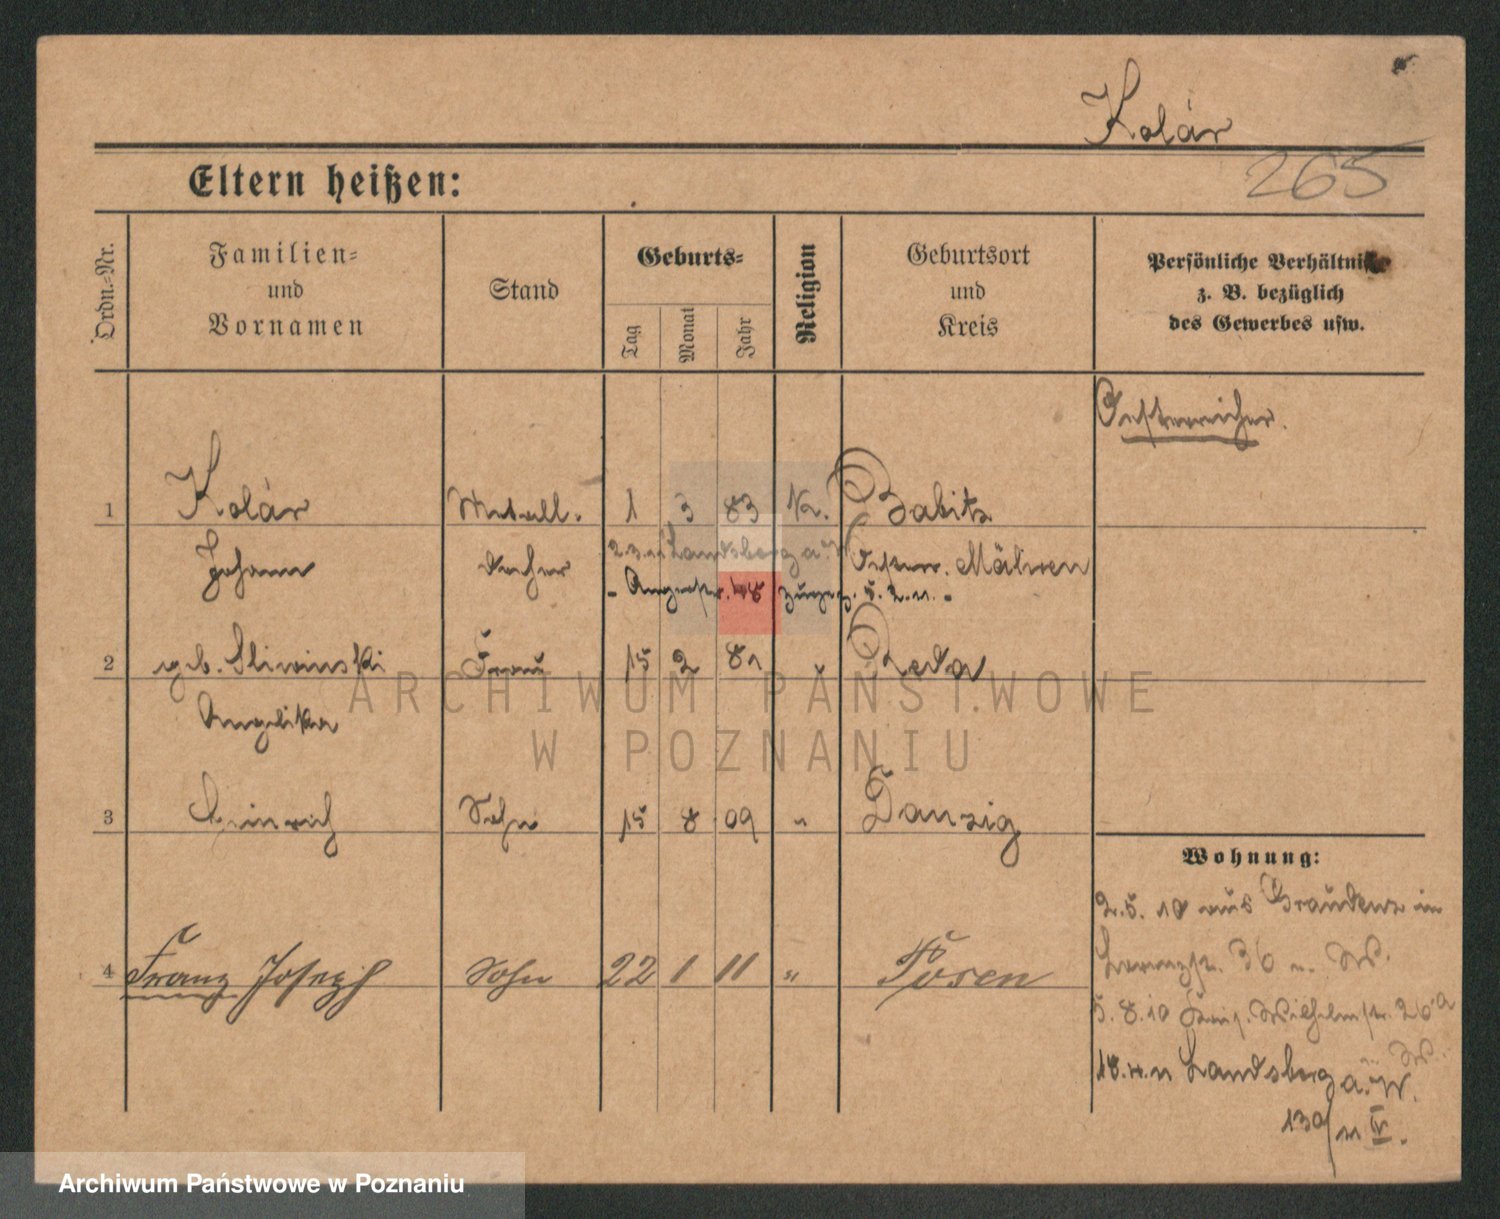 Kolár
265
Eltern heißen:
Ordn.-Nr.
Familien-
und
Vornamen
Stand
Geburts-
Tag
Monat
Jahr
Religion
Geburtsort
und
Kreis
Persönliche Verhältnisse
z. B. bezüglich
des Gewerbes usw.
Oesterreicher.
1 Kolár Metall- 1 3 83 K. Babitz
Johann dreher Oesterr. Mähren
2.3.11 Landsberg a/W
2 geb. Sliwinski Frau 15 2 81 " Reda
Angelika
3 Heinrich Sohn 15 8 09 " Danzig
4 Franz Joseph Sohn 22 1 11 " Posen
Wohnung:
2.5.10 aus Graudenz in
36
5.8.10 Wilhelmstr. 26a
18.4.11 Landsberg a. W.
130/11 IV.
ARCHIWUM PAŃSTWOWE
W POZNANIU
Archiwum Państwowe w Poznaniu